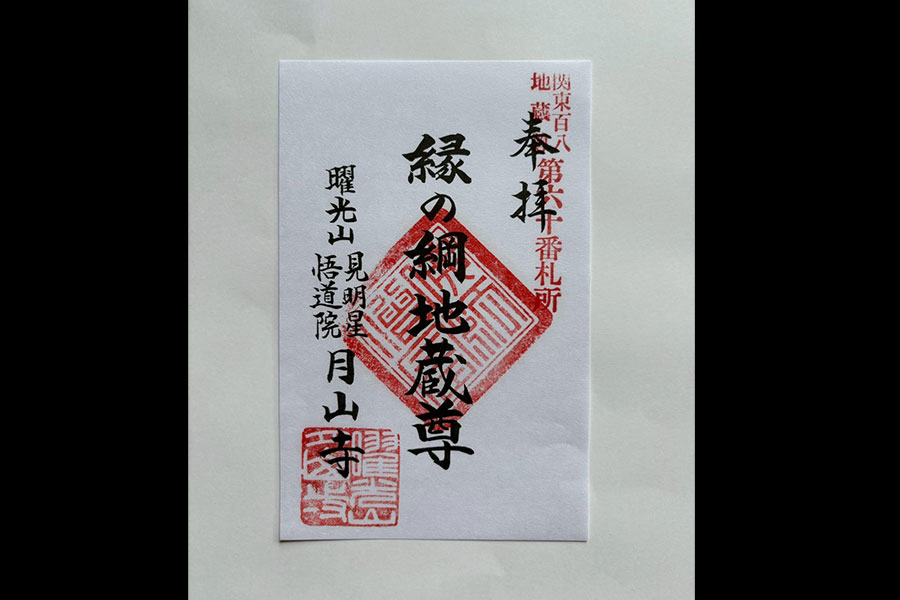 関東百八
地蔵
第六十番札所
奉拝
縁の綱地蔵尊
曜光山
見明星
悟道院
月山寺
曜光山
月山寺